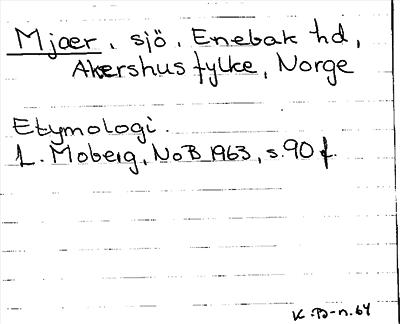 Mjær, sjö, Enebak hd,
Akershus fylke, Norge
Etymologi.
L. Moberg, NoB 1963, s. 90 f.
K. B-n. 64